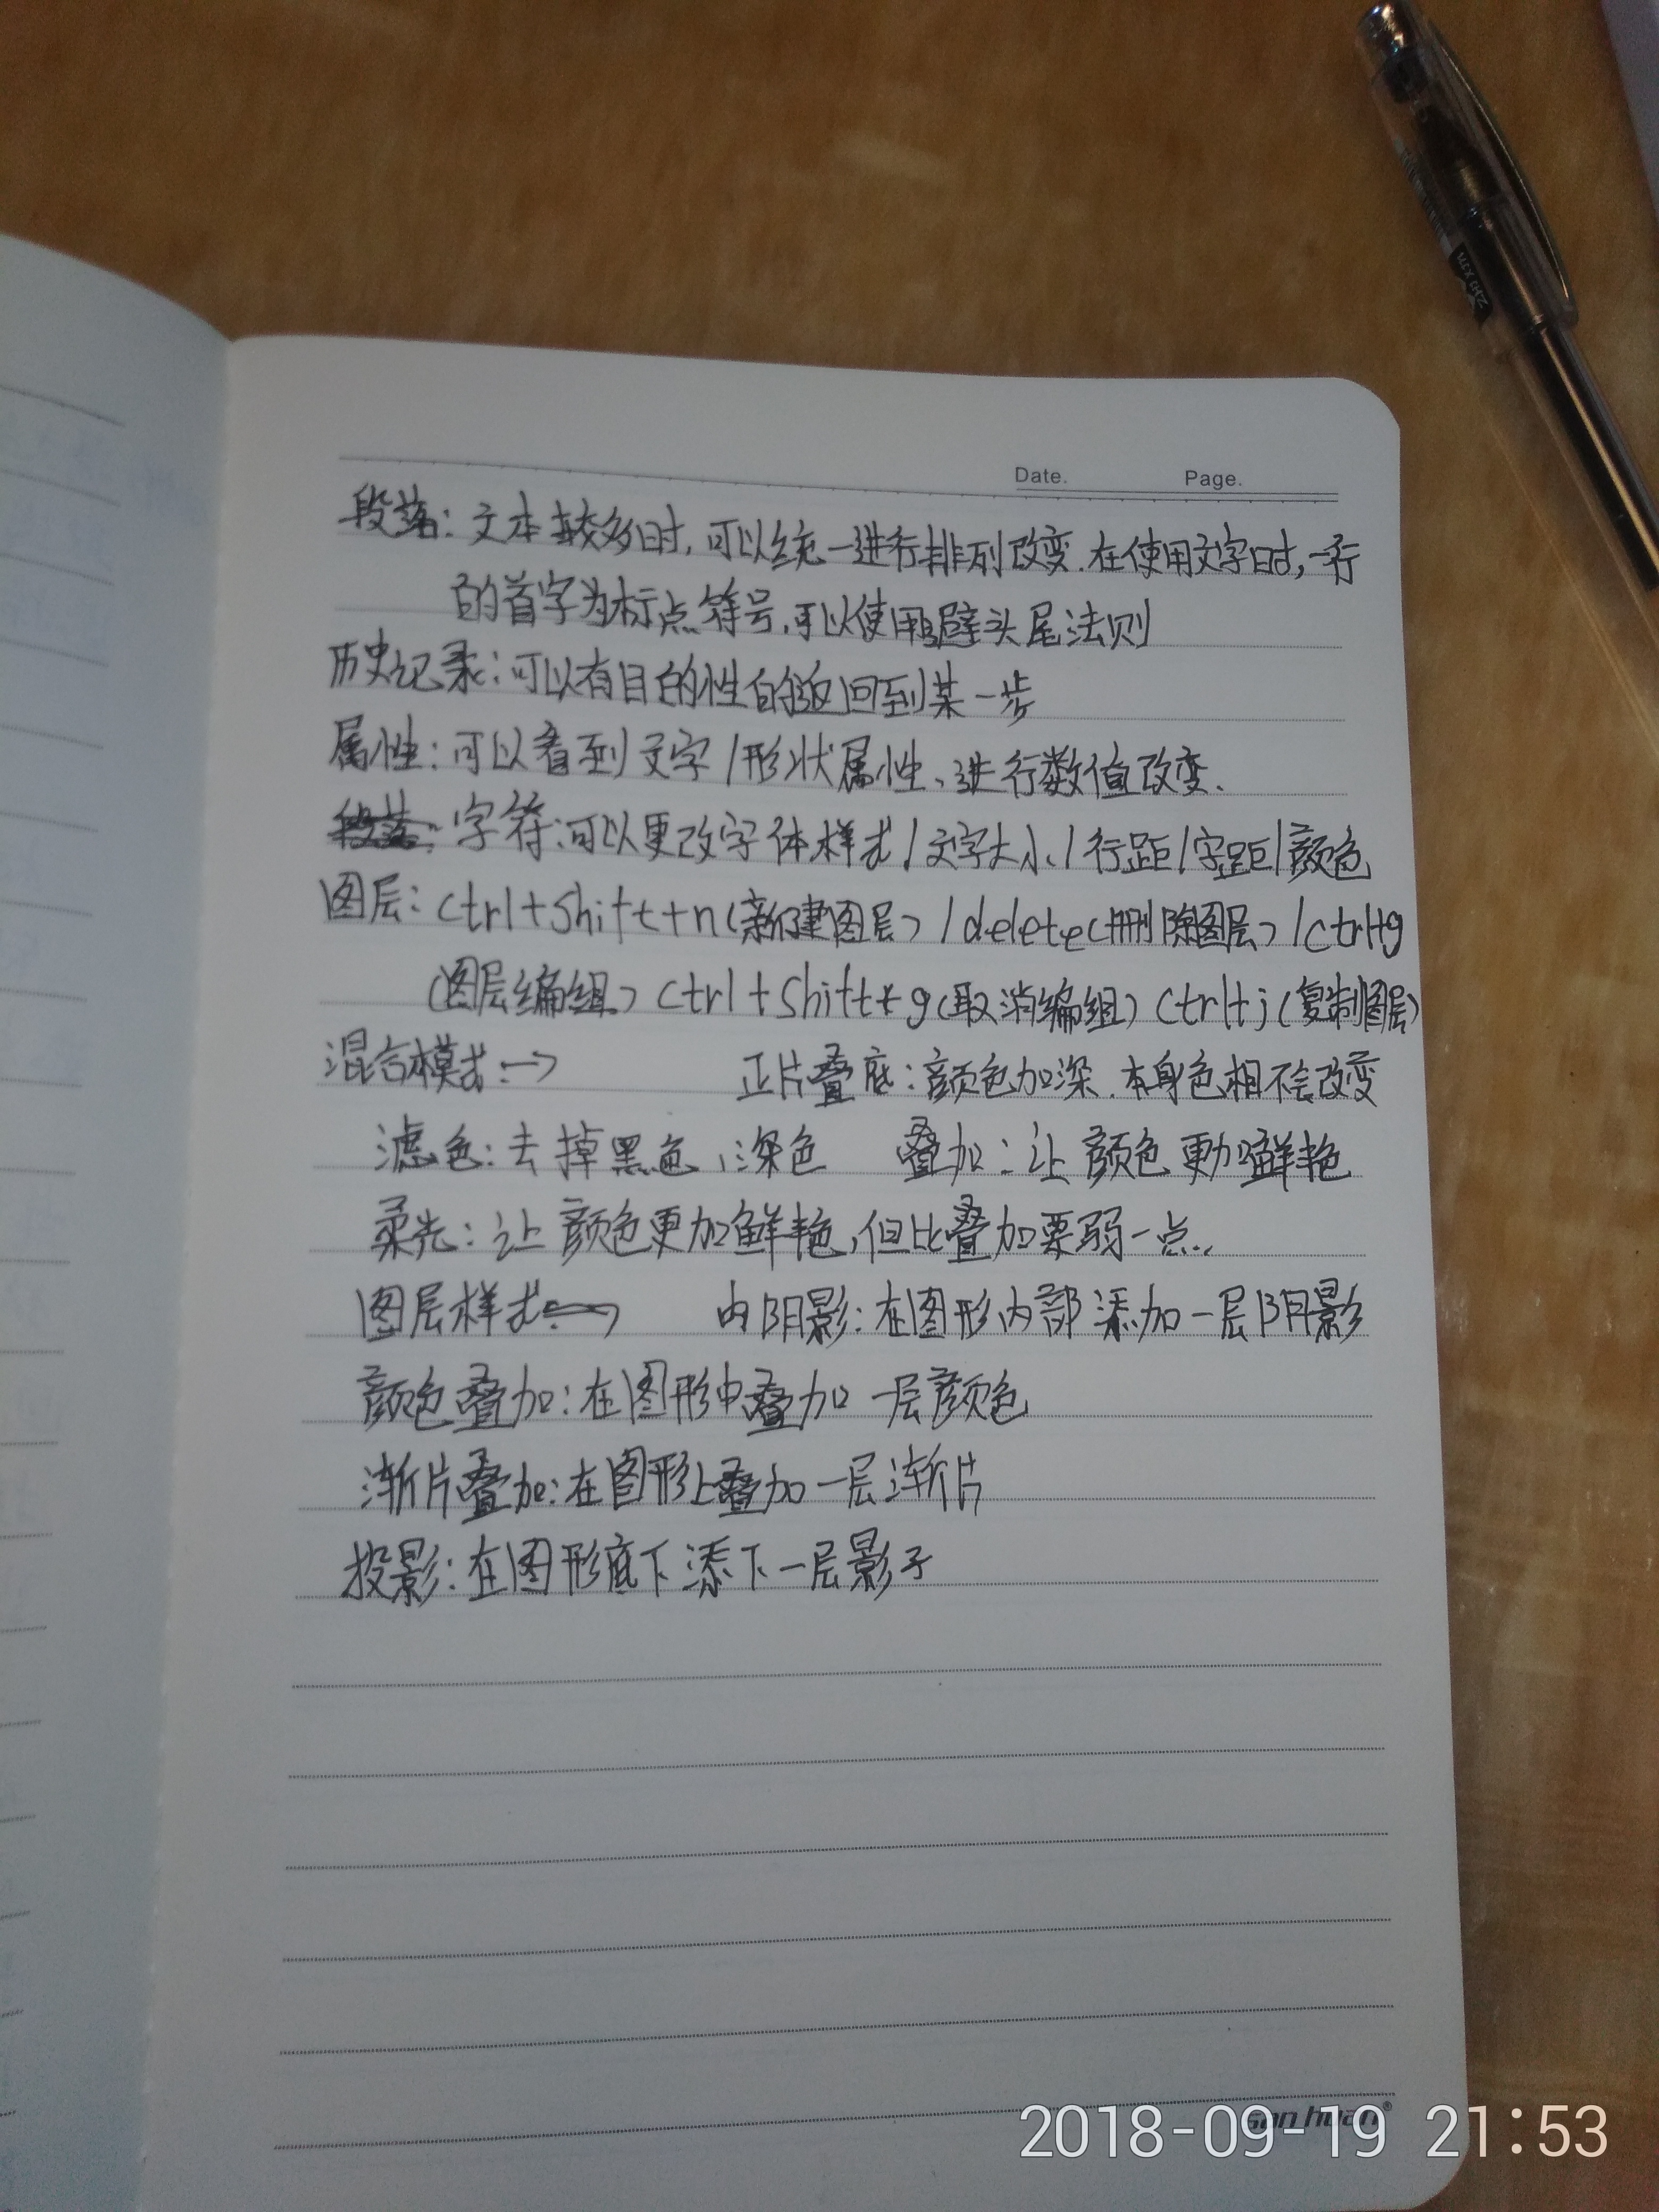 Date. Page.
段落：文本较多时，可以统一进行排列改变.在使用文字时，一行
的首字为标点符号，可以使用避头尾法则
历史记录：可以有目的性的返回到某一步
属性：可以看到文字/形状属性、进行数值改变.
段落：字符：可以更改字体样式/文字大小/行距/字距/颜色
图层：ctrl+shift+n(新建图层)/delete(删除图层)/ctrl+g
(图层编组) ctrl+shift+g(取消编组) ctrl+j(复制图层)
混合模式：→ 正片叠底：颜色加深.本身色相不会改变
滤色：去掉黑色，深色 叠加：让颜色更加鲜艳
柔光：让颜色更加鲜艳，但比叠加要弱一点..
图层样式：→ 内阴影：在图形内部添加一层阴影
颜色叠加：在图形中叠加一层颜色
渐片叠加：在图形上叠加一层渐片
投影：在图形底下添下一层影子
San huan®
2018-09-19 21:53